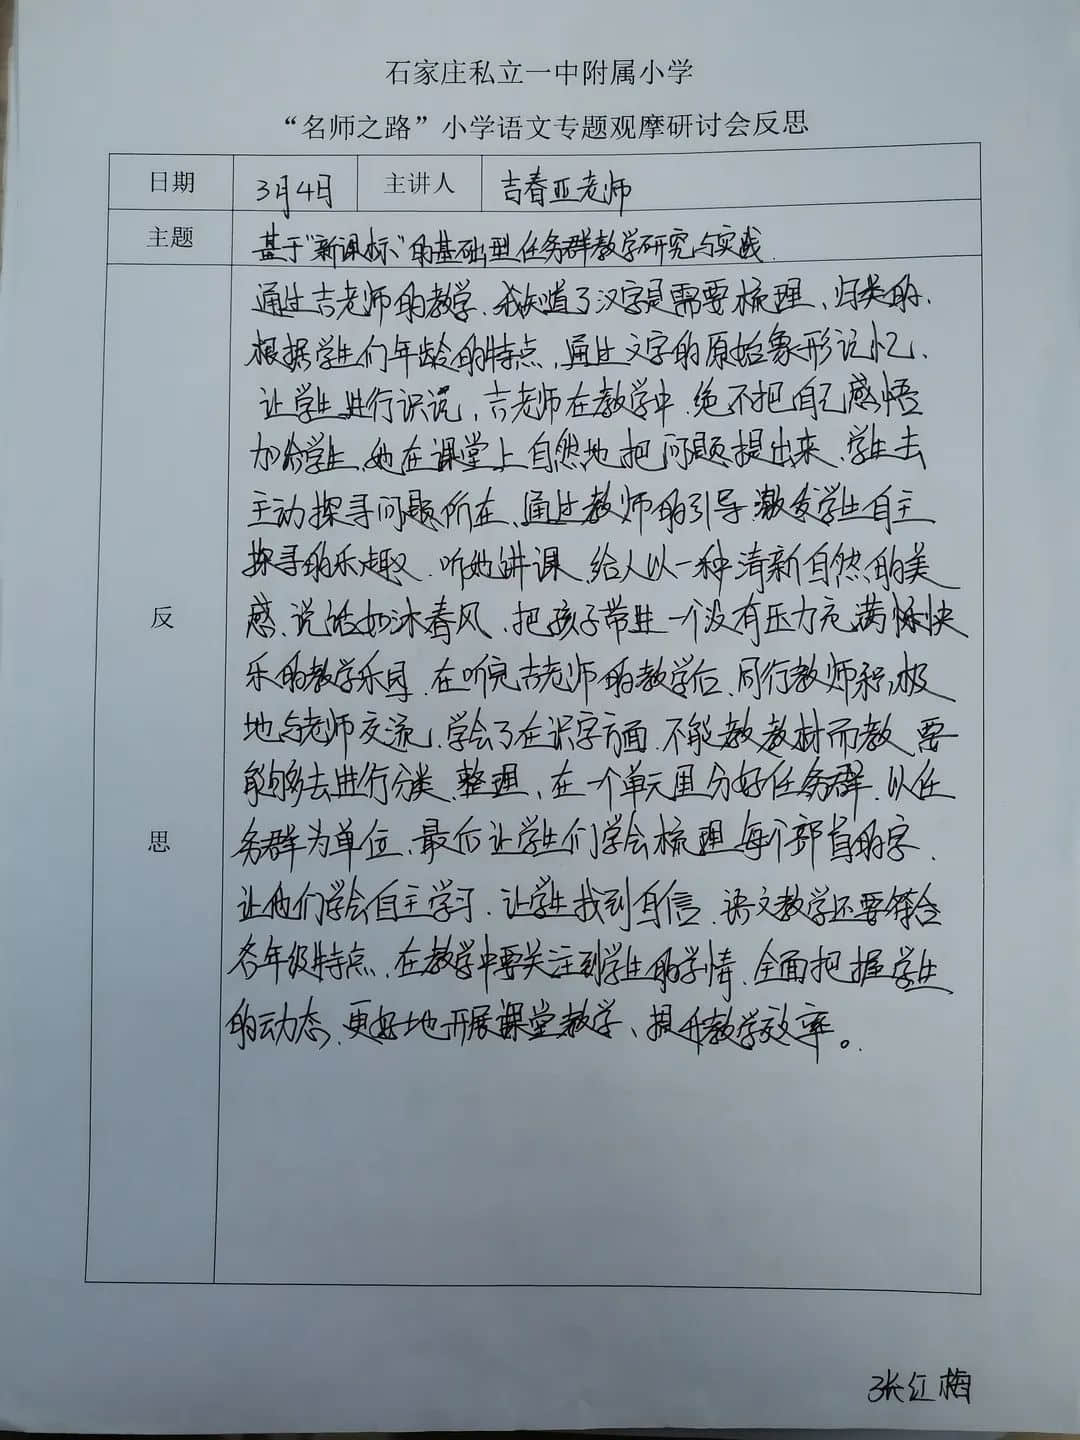 石家庄私立一中附属小学
“名师之路”小学语文专题观摩研讨会反思
日期 3月4日 主讲人 吉春亚老师
主题 基于“新课标”的基础型任务群教学研究与实践.
反思
通过吉老师的教学、我知道了汉字是需要梳理、归类的、
根据学生们年龄的特点，通过文字的原始象形记忆、
让学生进行识记，吉老师在教学中、绝不把自己感悟
加给学生、她在课堂上自然地把问题提出来、学生去
主动探寻问题所在、通过教师的引导、激发学生自主
探寻的乐趣、听她讲课、给人以一种清新自然的美
感、说话如沐春风、把孩子带进一个没有压力充满愉快
乐的教学乐园、在听完吉老师的教学后、同行教师积极
地与老师交流、学会了在识字方面、不能教教材而教、要
能够去进行分类、整理、在一个单元里分好任务群、以任
务群为单位、最后让学生们学会梳理每个部首的字、
让他们学会自主学习、让学生找到自信、语文教学还要符合
各年级特点、在教学中要关注到学生的学情、全面把握学生
的动态、更好地开展课堂教学、提升教学效率。
张红梅